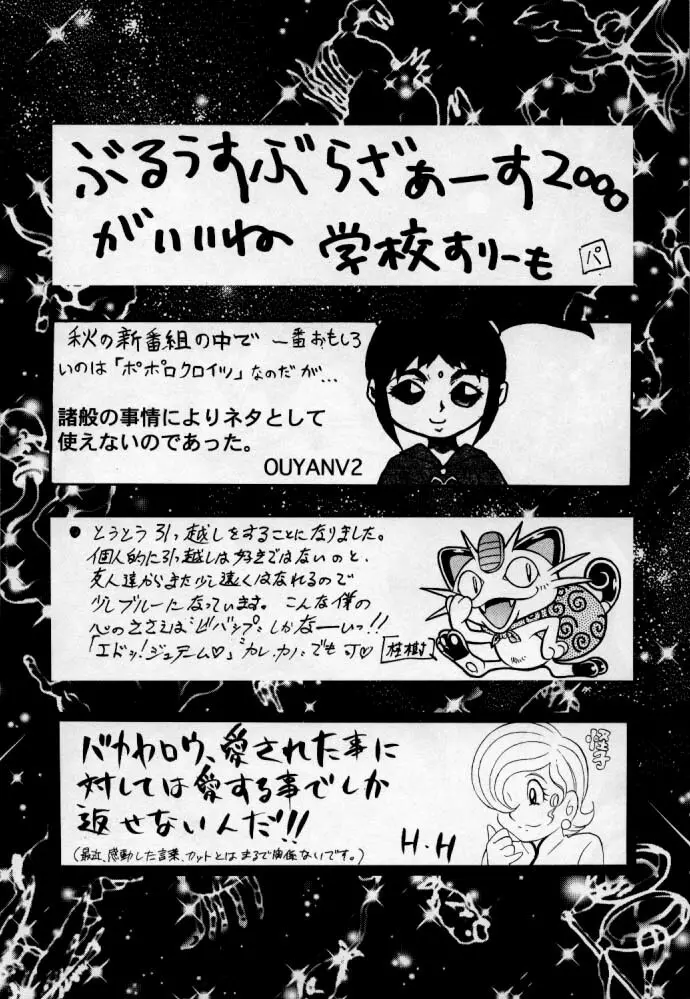 ぶるうすぶらざぁーす2000
がいいね 学校すりーも
パ
秋の新番組の中で 一番おもしろ
いのは「ポポロクロイツ」なのだが…
諸般の事情によりネタとして
使えないのであった。
OUYANV2
●とうとう引っ越しをすることになりました。
個人的に引っ越しは好きではないのと、
友人達からまた少し遠くはなれるので
少しブルーになっています。こんな僕の
心のささえは"ビバップ"しかなーいっ!!
「エドッ!ジュテーム♡」"カレカノ"でも可♡
桂樹
バカヤロウ、愛された事に
対しては愛する事でしか
返せないんだ!!
(最近、感動した言葉、カットとはまるで関係ないです。)
H.H
怪子